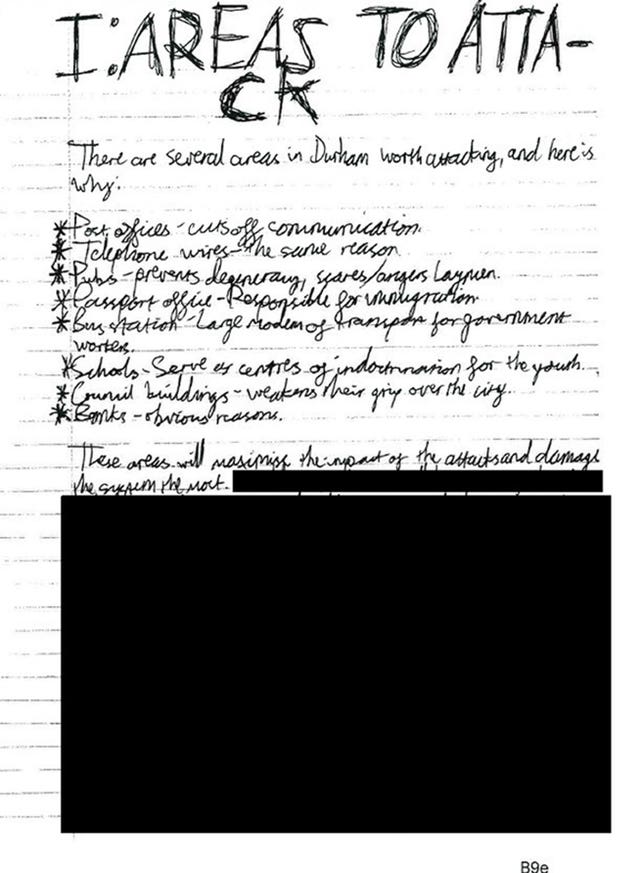 I: AREAS TO ATTA-
CK
There are several areas in Durham worth attacking, and here is
why:
*Post offices - cuts off communication.
*Telephone wires - the same reason
*Pubs - prevents degeneracy, scares/angers Laymen.
*Passport office - Responsible for immigration
*Bus station - Large modem of transport for government
workers.
*Schools - Serve as centres of indoctrination for the youth.
*Council buildings - weakens their grip over the city.
*Banks - obvious reasons.
These areas will maximise the impact of the attacks and damage
the system the most.
B9e